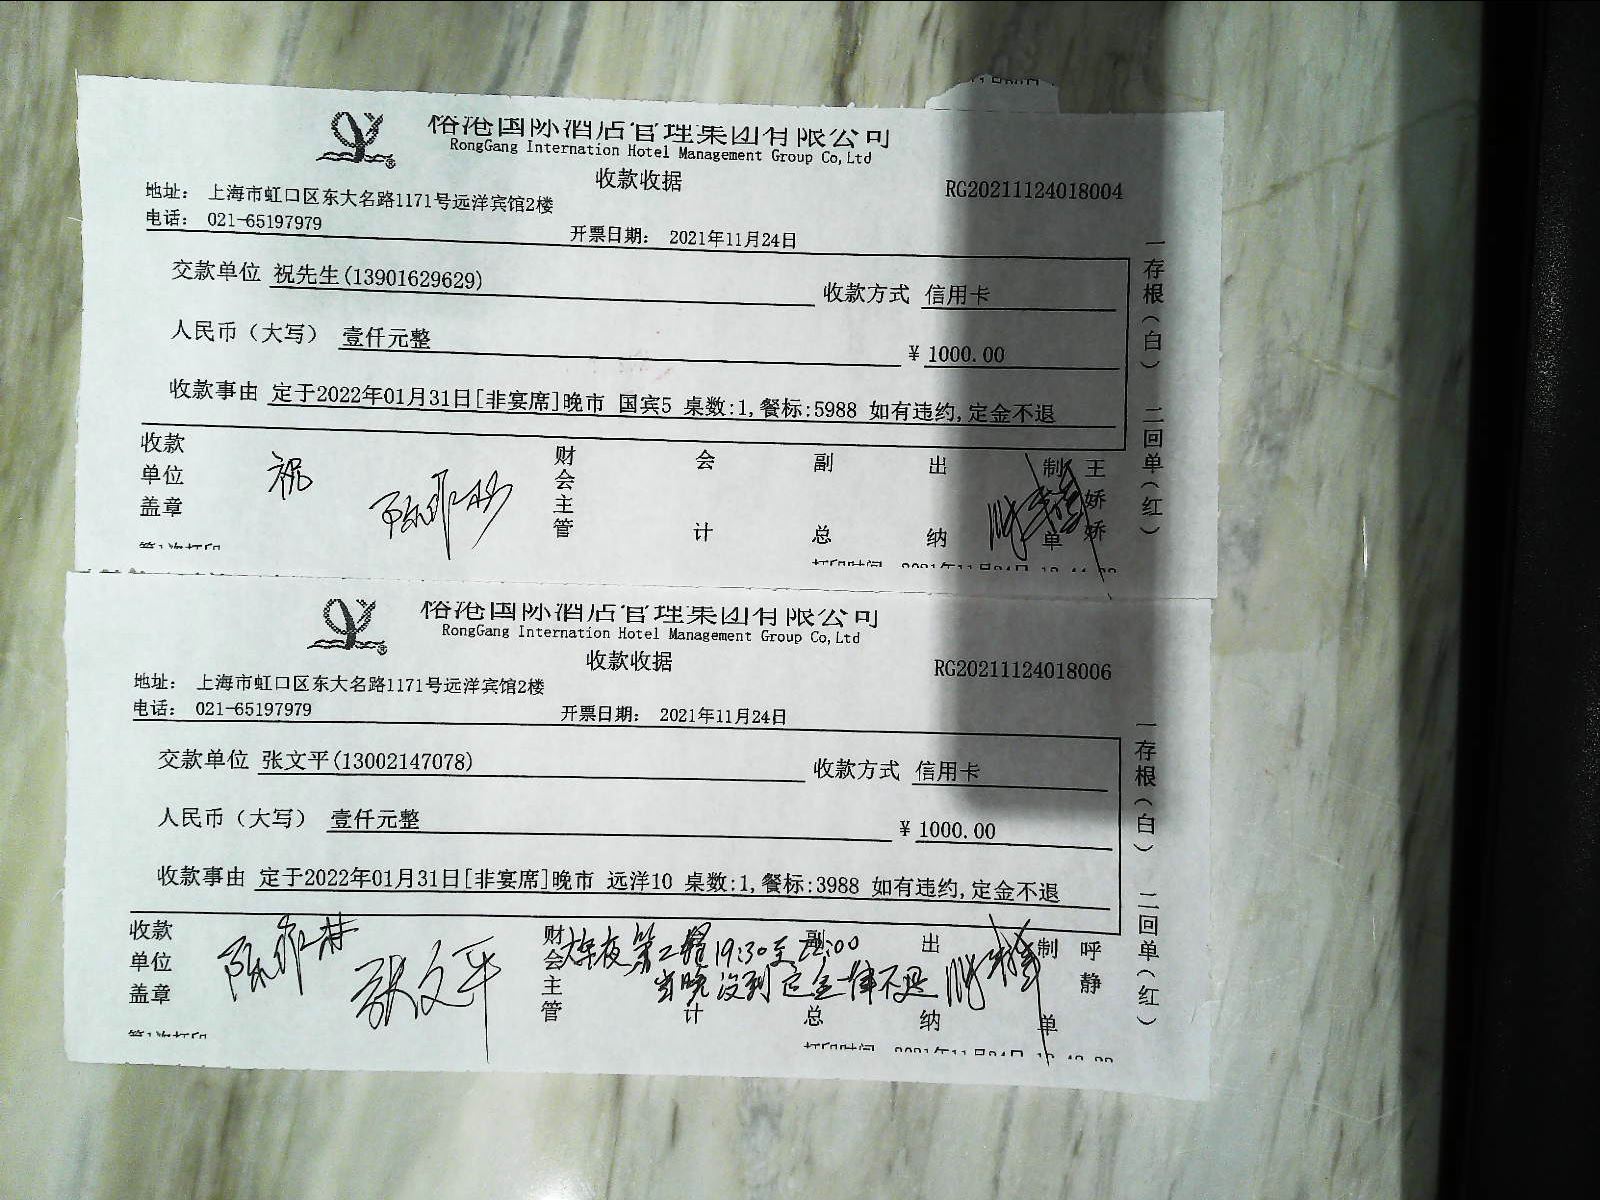 榕港国际酒店管理集团有限公司
RongGang Internation Hotel Management Group Co,Ltd
收款收据
RG20211124018004
地址： 上海市虹口区东大名路1171号远洋宾馆2楼
电话： 021-65197979
开票日期： 2021年11月24日
交款单位 祝先生(13901629629)
收款方式 信用卡
人民币（大写） 壹仟元整
¥ 1000.00
收款事由 定于2022年01月31日[非宴席]晚市 国宾5 桌数:1,餐标:5988 如有违约,定金不退
收款单位盖章
祝
财会主管
会计
副总
出纳
制单
王娇娇
一存根（白） 二回单（红）
第1次打印
打印时间 2021年11月24日
榕港国际酒店管理集团有限公司
RongGang Internation Hotel Management Group Co,Ltd
收款收据
RG20211124018006
地址： 上海市虹口区东大名路1171号远洋宾馆2楼
电话： 021-65197979
开票日期： 2021年11月24日
交款单位 张文平(13002147078)
收款方式 信用卡
人民币（大写） 壹仟元整
¥ 1000.00
收款事由 定于2022年01月31日[非宴席]晚市 远洋10 桌数:1,餐标:3988 如有违约,定金不退
收款单位盖章
张文平
财会主管
会计
副总
出纳
制单
呼静
年夜第二轮 19:30至22:00
当晚没到定金一律不退
一存根（白） 二回单（红）
第1次打印
打印时间 2021年11月24日